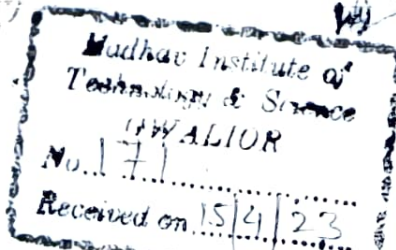 Madhav Institute of
Technology & Science
GWALIOR
No. 171
Received on 15/4/23